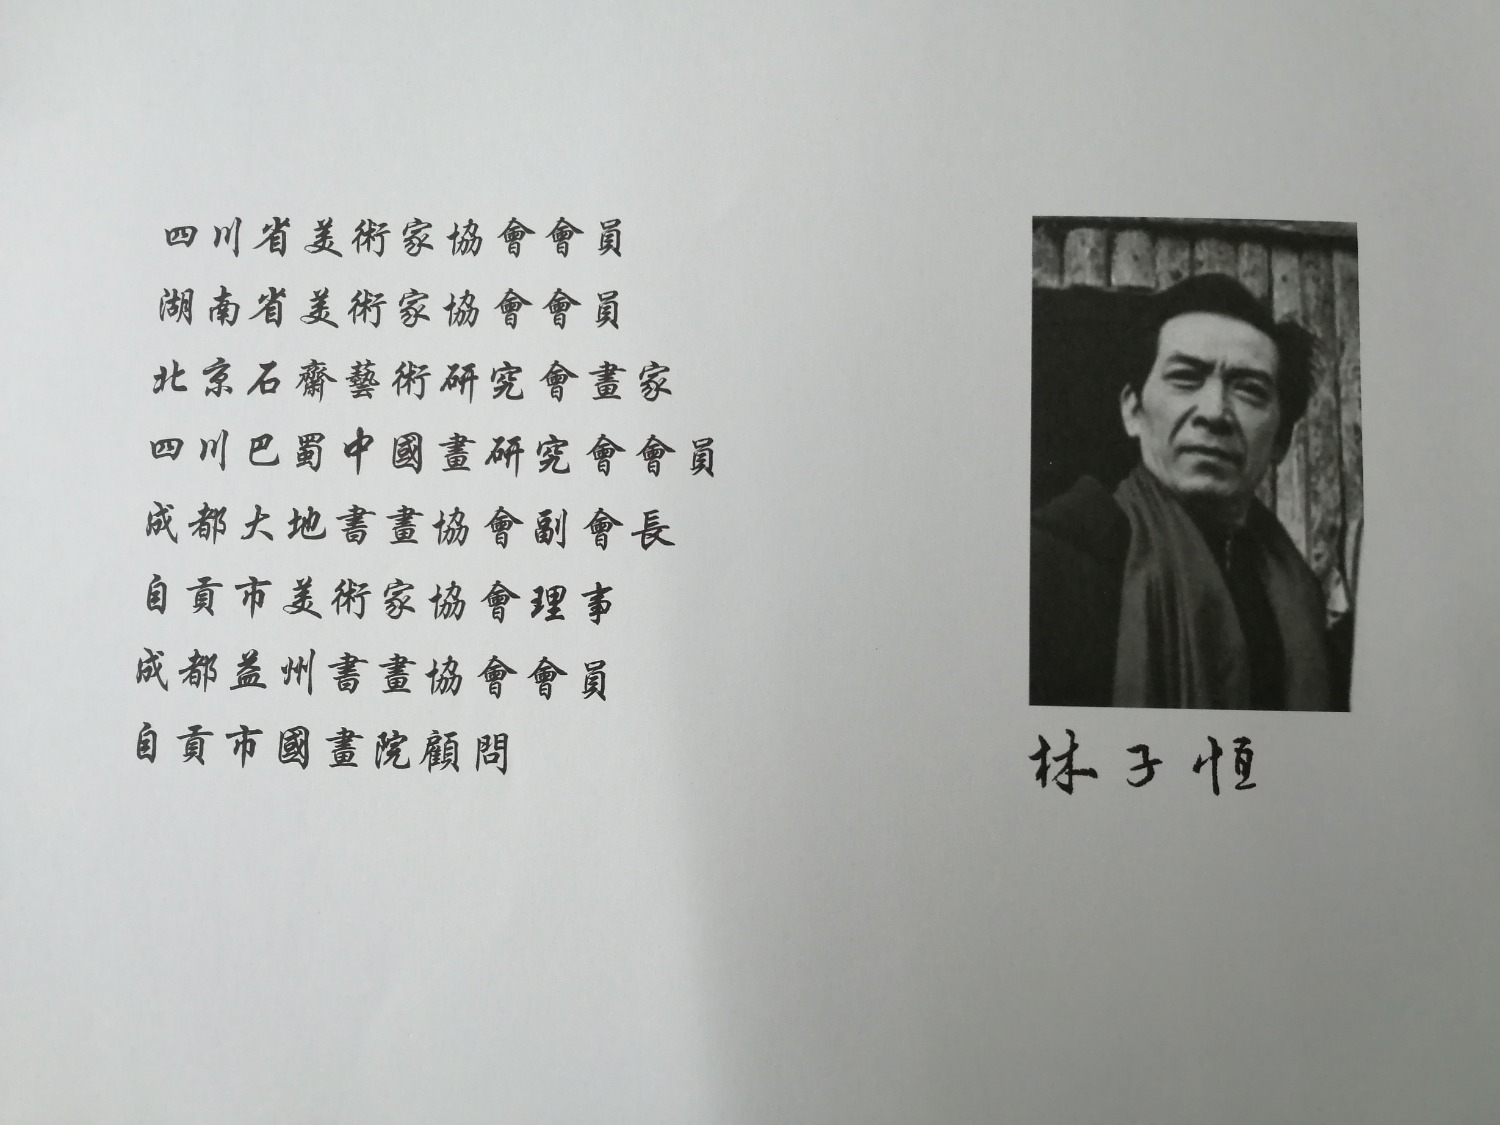 四川省美術家協會會員
湖南省美術家協會會員
北京石齋藝術研究會畫家
四川巴蜀中國畫研究會會員
成都大地書畫協會副會長
自貢市美術家協會理事
成都益州書畫協會會員
自貢市國畫院顧問
林子恒